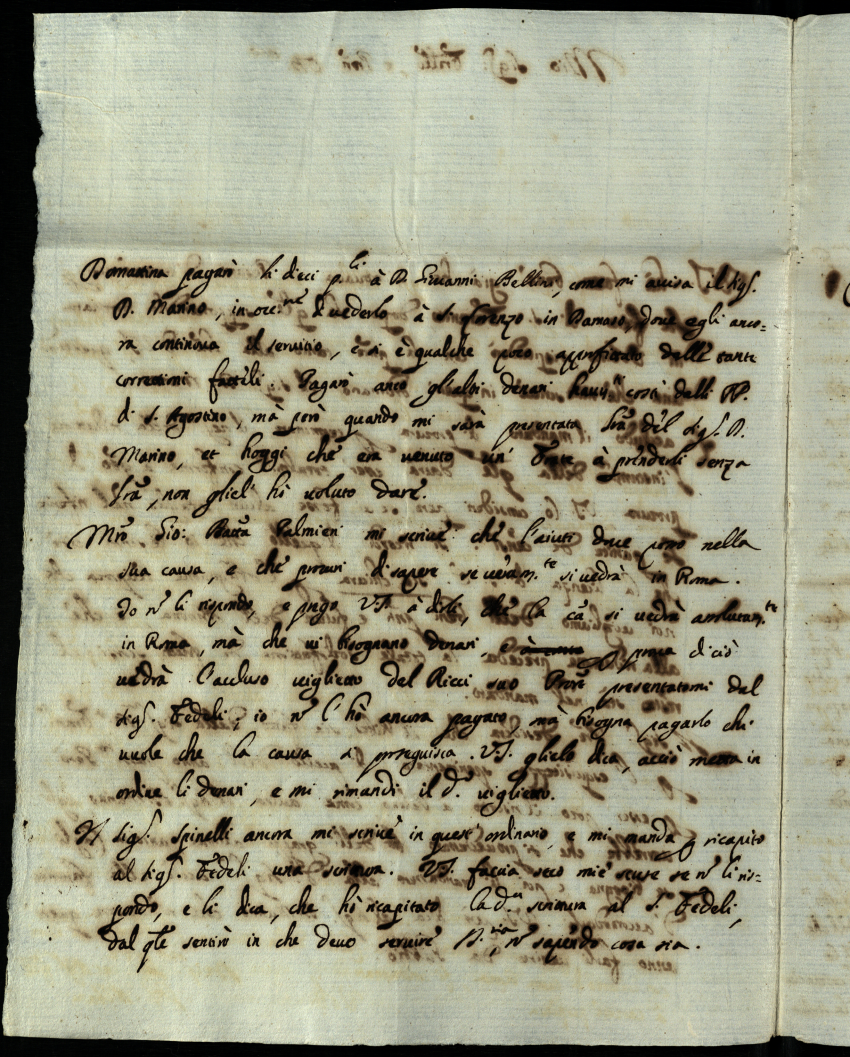 Domattina pagarò li dieci p.li à D. Giovanni Bellino, come mi avisa il Sig.r
D. Marino, in occ.ne di vederlo à S. Lorenzo in Damaso, dove egli anco=
ra continova il servitio, e si è qualche poco approfittato delle tante
correttioni fatteli. Pagarò anco gl'altri denari havuti costì dalli PP.
di S. Agostino, mà però quando mi sarà presentata l'ra del Sig.r D.
Marino, et hoggi che era venuto un' frate à prenderli senza
l'ra, non gliel' hò voluto dare.
Mro Gio: Batta Palmieri mi scrive che l'aiuti dove posso nella
sua causa, e che procuri di sapere se veram.te si vedrà in Roma.
Io nò li rispondo, e prego V.S. à dirli, che la câ si vedrà assolutam.te
in Roma, mà che vi bisognano denari, e p prova di ciò
vedrà l'accluso viglietto del Ricci suo Prore presentatomi dal
Sig.r Fedeli; io nò l'hò ancora pagato, mà bisogna pagarlo chi
vuole che la causa si proseguisca. V.S. glielo dica, acciò metta in
ordine li denari, e mi rimandi il d.o viglietto.
Il Sig.r Spinelli ancora mi scrive in quest'ordinario, e mi manda p ricapito
al Sig.r Fedeli una scrittura. V.S. faccia seco mie scuse se nò li ris=
pondo, e li dica, che hò ricapitato la d.a scrittura al S.r Fedeli,
dal qle sentirò in che devo servire nò sapendo cosa sia.